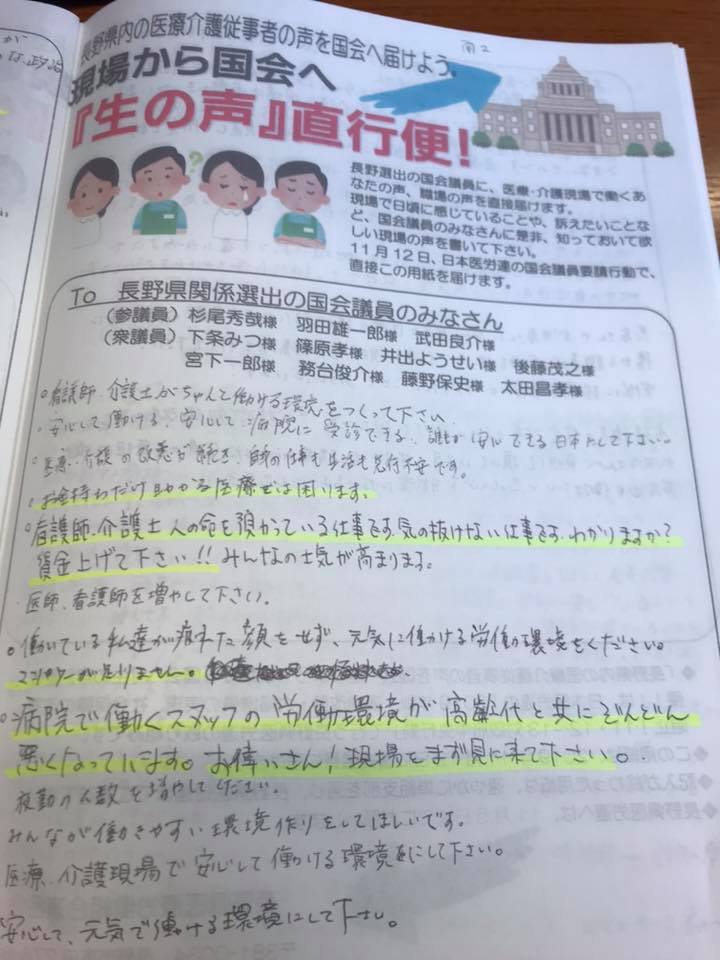 長野県内の医療介護従事者の声を国会へ届けよう。
現場から国会へ
『生の声』直行便！
長野選出の国会議員に、医療・介護現場で働くあ
なたの声、職場の声を直接届けます。
現場で日頃に感じていることや、訴えたいことな
ど、国会議員のみなさんに是非、知っておいて欲
しい現場の声を書いて下さい。
11月12日、日本医労連の国会議員要請行動で、
直接この用紙を届けます。
To 長野県関係選出の国会議員のみなさん
（参議員）杉尾秀哉様 羽田雄一郎様 武田良介様
（衆議員）下条みつ様 篠原孝様 井出ようせい様 後藤茂之様
宮下一郎様 務台俊介様 藤野保史様 太田昌孝様
○看護師、介護士がちゃんと働ける環境をつくって下さい
・安心して働ける、安心して病院に受診できる、誰もが安心できる日本にして下さい。
○医療・介護の改悪が続き、自分の仕事も生活も先行不安です。
○お金持ちだけ助かる医療では困ります。
○看護師、介護士 人の命を預かっている仕事です。気の抜けない仕事です。わかりますか？
賃金上げて下さい!! みんなの士気が高まります。
医師、看護師を増やして下さい。
○働いている私達が疲れた顔をせず、元気に働ける労働環境をください。
マンパワーが足りません。
○病院で働くスタッフの労働環境が高齢代と共にどんどん
悪くなっています。お偉いさん！現場をまず見に来て下さい。
夜勤の人数を増やしてください。
みんなが働きやすい環境作りをしてほしいです。
医療、介護現場で安心して働ける環境にして下さい。
安心して、元気で働ける環境にして下さい。